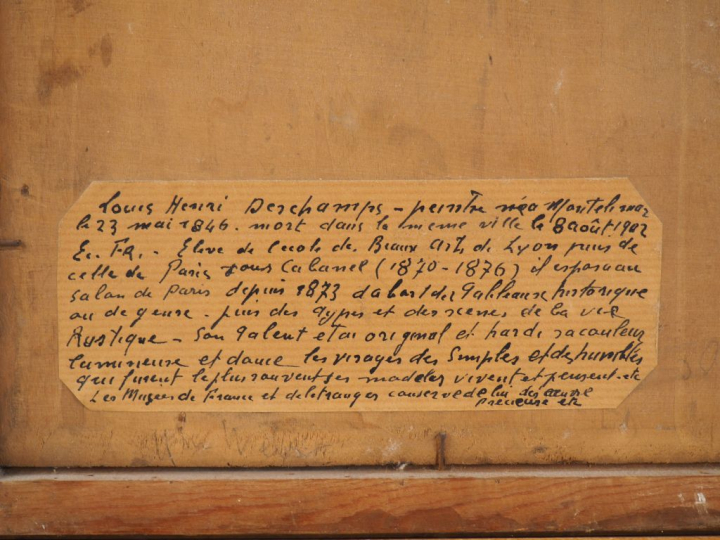 Louis Henri Deschamps - peintre né a Montelimar
le 23 mai 1846. mort dans la meme ville le 8 août 1902
Ec. FR. - Elève de l'ecole des Beaux Arts de Lyon puis de
celle de Paris sous Cabanel (1870-1876) il exposa au
Salon de Paris depuis 1873 d'abord des Tableaux historique
ou de genre. puis des types et des scenes de la vie
Rustique - Son talent etai original et hardi sa couleur
lumineuse et douce les visages des Simples et des humbles
qui furent le plus souvent ses modeles vivent et pensent. etc
Les Musees de France et de l'etranger conserve de lui des œuvre
precieuse etc